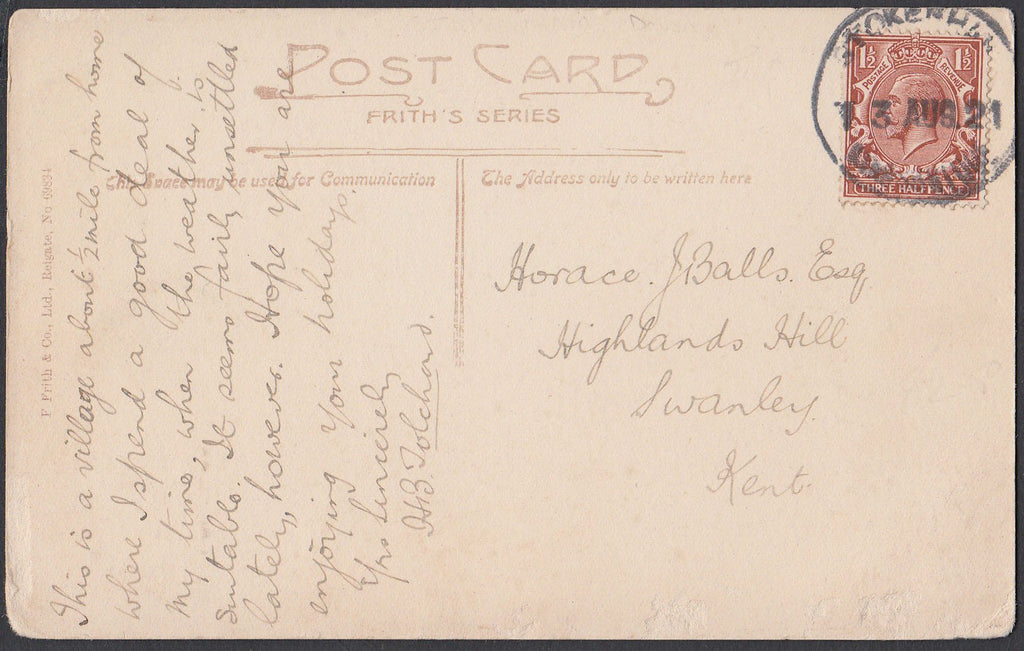 POST CARD
FRITH'S SERIES
This Space may be used for Communication
The Address only to be written here
F Frith & Co., Ltd., Reigate, No 69834
This is a village about ½ mile from home
where I spend a good deal of
my time, when the weather is
suitable. It seems fairly unsettled
lately, however. Hope you are
enjoying your holidays.
Yrs Sincerely
H.B. Tolchard.
Horace. J Balls. Esq
Highlands Hill
Swanley.
Kent.
1½ 1½
POSTAGE REVENUE
THREE HALFPENCE
13 AUG. 21